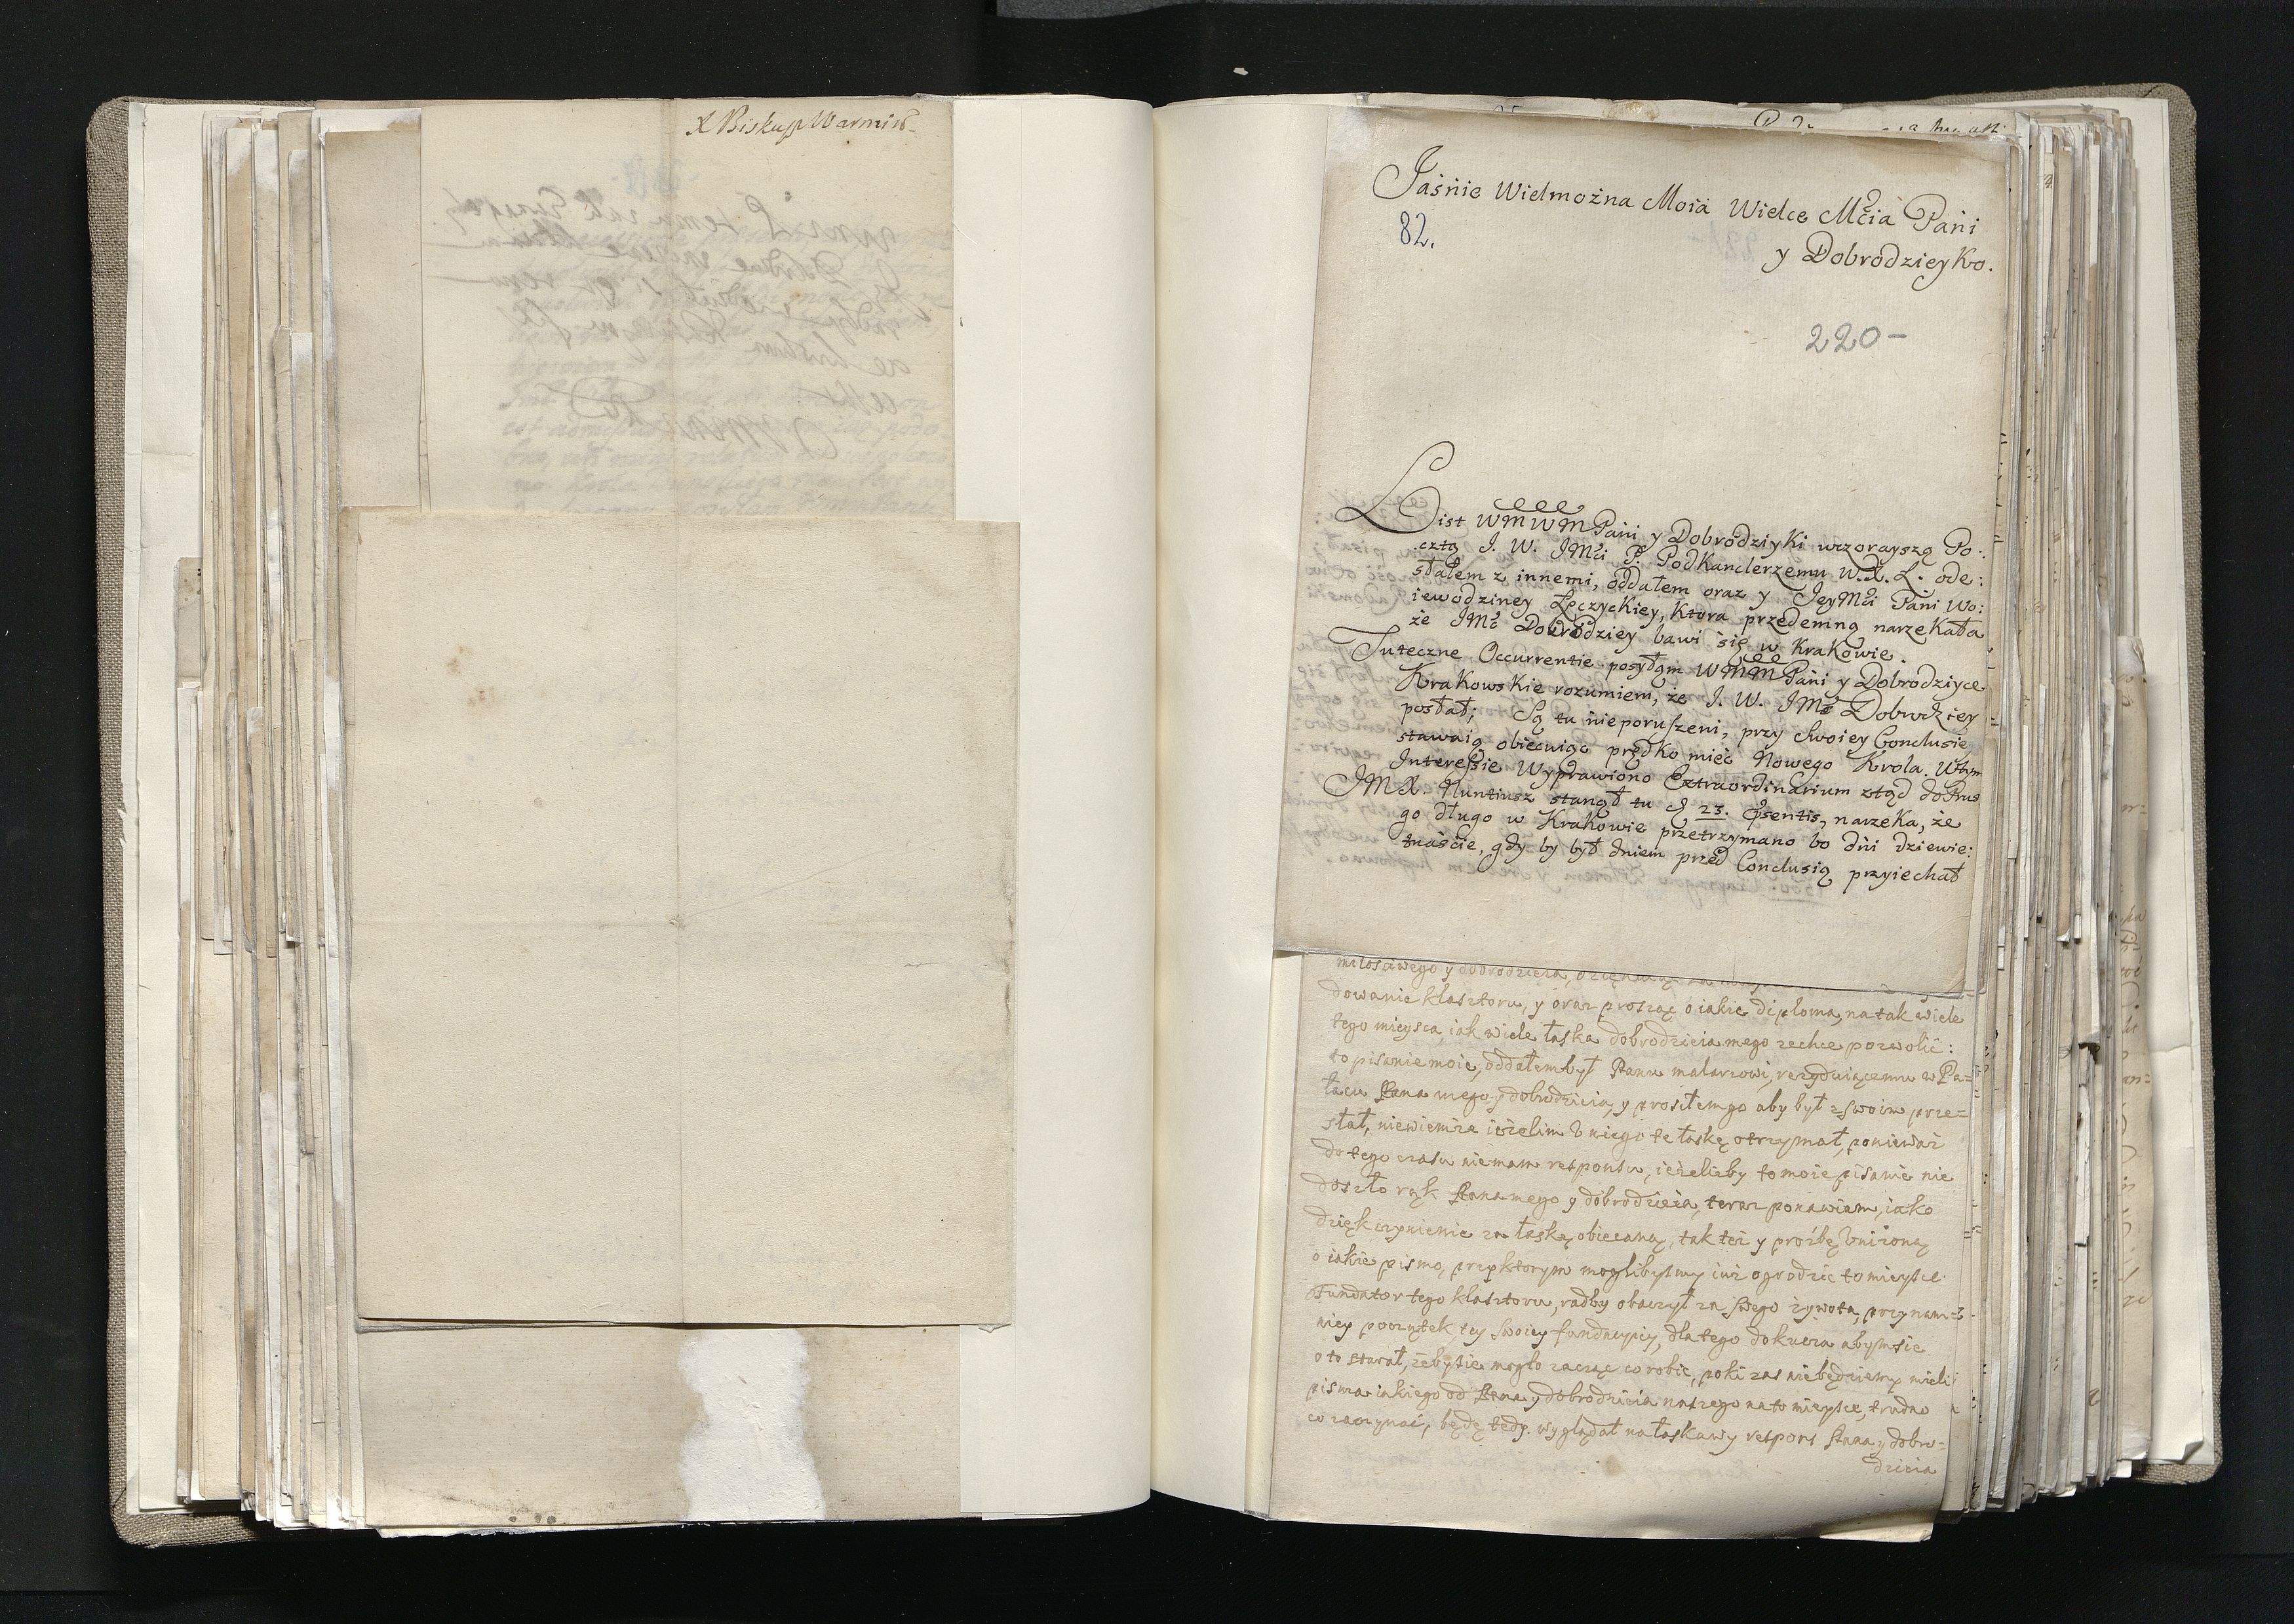 X Biskup Warmiń
Jaśnie Wielmożna Moia Wielce Mćia Pani
82.
y Dobrodzieyko.
220-
List WMWM Pani y Dobrodziyki wczorayszą Po:
cztą J. W. JMći P. Podkanclerzemu W.X.L. ode:
słałem z innemi, oddałem oraz y JeyMći Pani Wo:
iewodziney Łęczyckiey, Ktora przedemną narzekała
że JMć Dobrodziey bawi się w Krakowie.
Tuteczne Occurrentie posyłąm WMM Pani y Dobrodziyce
Krakowskie rozumiem, że J. W. JMć Dobrodziey
posłał; Są tu nieporuszeni, przy swoiey Conclusiey
stawaią obiecuiąc prędko mieć Nowego Krola. Wtym
Interessie Wyprawiono Extraordinarium ztąd do Prus
JMX. Nuntiusz stanął tu d 23. Psentis, narzeka, że
go długo w Krakowie przetrzymano bo dni dziewie:
tnaście, gdy by był dniem przed Conclusią przyiechał
miłościwego y dobrodzieia,
dowanie klasztoru, y oraz prosząc o iakie diploma, na tak wiele
tego mieysca, iak wiele łaska dobrodzieia mego zechce pozwolić:
to pisanie moie, oddałem był Panu malarzowi, rezyduiącemu w Pa=
łacu Pana mego y dobrodzieia, y prosiłem go aby był z swoim prze=
słał, niewiem że ieżelim u niego tę łaskę otrzymał, ponieważ
do tego czasu niemam responsu, ieżeliby to moie pisanie nie
doszło rąk Pana mego y dobrodzieia, teraz ponawiam, iako
dziękczynienie za łaskę obiecaną, tak też y prośbę uniżoną
o iakie pismo, przy ktorym moglibysmy iuż ogrodzić to mieysce.
Fundator tego klasztoru, radby obaczył za swego żywota, przynam=
niey początek tey swoiey fundacyiey, dlatego dokucza abym sie
o to starał, żeby sie mogło zacząć co robić, poki zas niebędziemy mieli
pisma iakiego od Pana y dobrodzieia naszego na to mieysce, trudno
co zaczynać, będę tedy wyglądał na łaskawy respons Pana y dobro=
dzieia